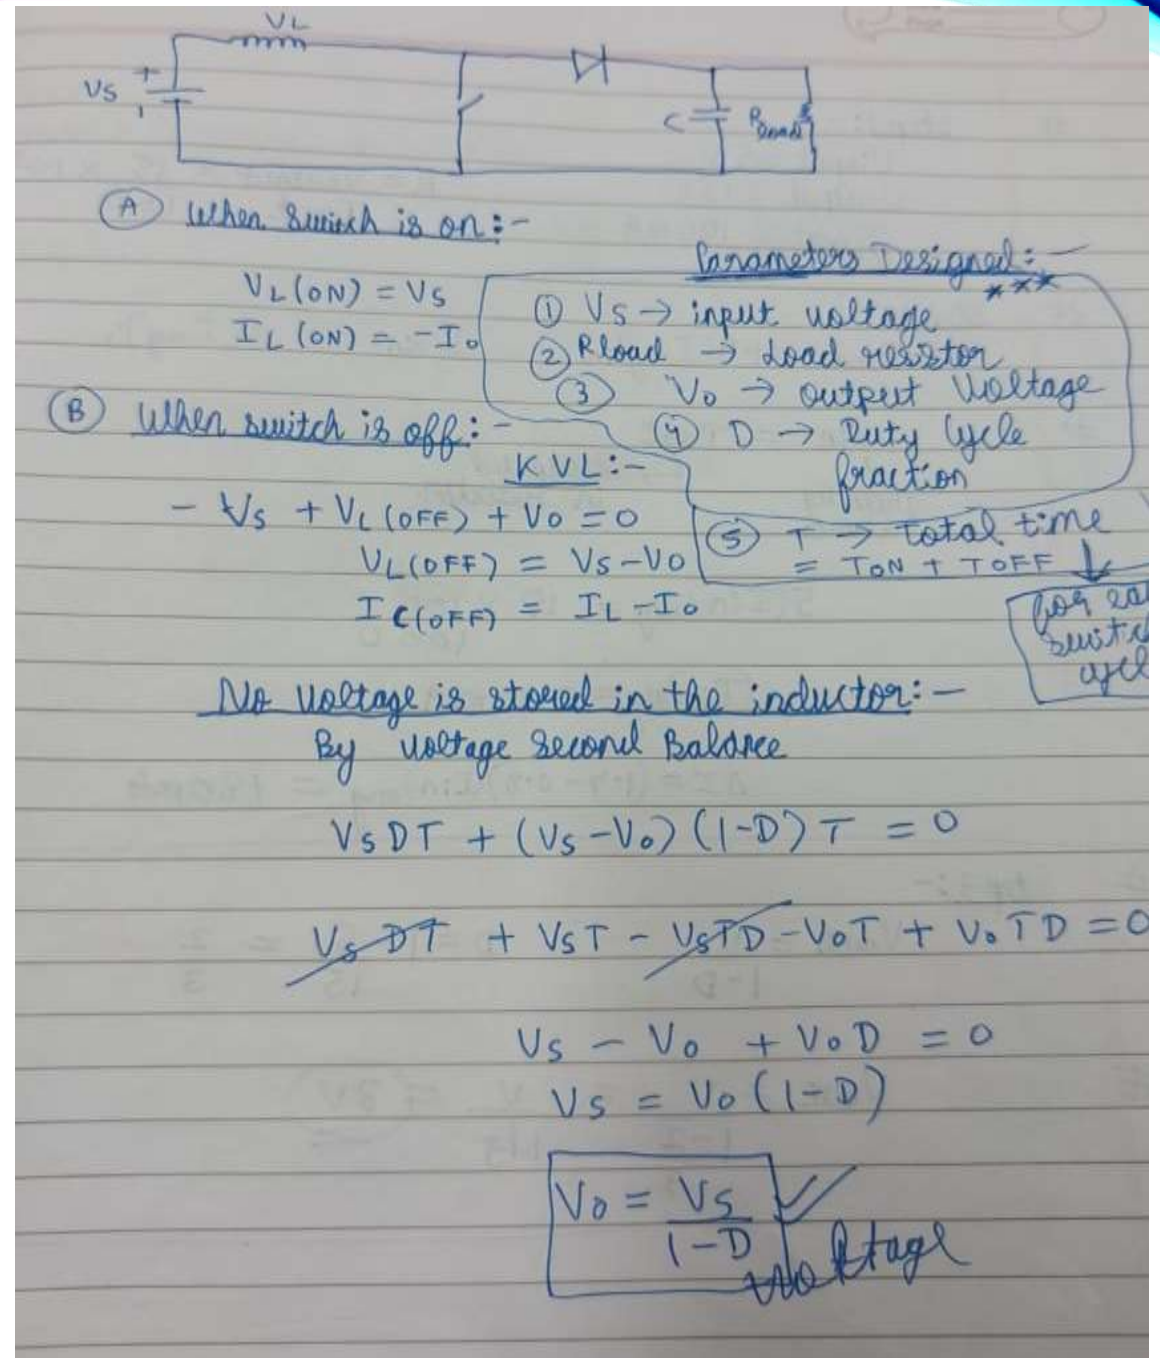 VL
VS + -
C Rload
(A) When Switch is on :-
VL(ON) = VS
IL(ON) = -Io
Parameters Designed :-
***
(1) VS → input voltage
(2) Rload → Load resistor
(3) Vo → output Voltage
(4) D → Duty Cycle
fraction
(5) T → Total time
= TON + TOFF
for ea
switc
cycl
(B) When switch is off :-
KVL :-
- Vs + VL(OFF) + Vo = 0
VL(OFF) = Vs-Vo
IC(OFF) = IL-Io
No Voltage is stored in the inductor :-
By Voltage Second Balance
VsDT + (Vs-Vo) (1-D) T = 0
Vs DT + VsT - VsTD - VoT + VoTD = 0
Vs - Vo + VoD = 0
Vs = Vo (1-D)
Vo = Vs
1-D
Voltage